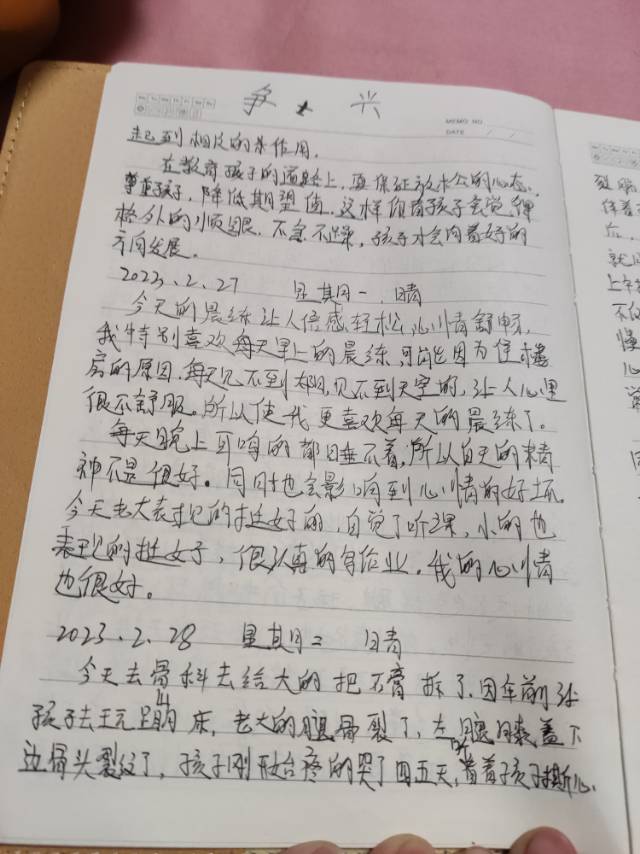 争 大 兴
MEMO NO.
DATE / /
起到相反的杀作用。
在教育孩子的道路上,要保证放松的心态,
尊重孩子,降低期望值,这样自己孩子会觉得
格外的顺眼,不急不躁,孩子才会向着好的
方向发展。
2023.2.27 星期一 晴
今天的晨练让人倍感轻松,心情舒畅,
我特别喜欢每天早上的晨练,可能因为住楼
房的原因,每天见不到太阳,见不到天空的,让人心里
很不舒服。所以使我更喜欢每天的晨练了。
每天晚上耳鸣的都睡不着,所以白天的精
神不是很好。同时也会影响到心情的好坏。
今天老大表现的挺好的,自觉了听课,小的也
表现的挺好,很认真的写作业。我的心情
也很好。
2023.2.28 星期二 晴
今天去骨科去给大的把石膏拆了,因年前让
孩子去玩蹦床,老大的腿骨裂了,左腿膝盖下
边骨头裂纹了,孩子刚开始疼的哭了四五天,看着孩子撕心